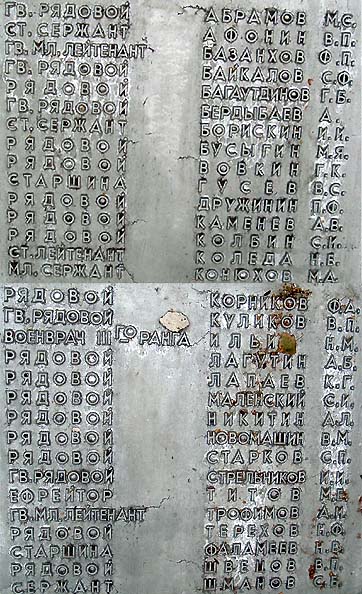 ГВ. РЯДОВОЙ АБРАМОВ М.С.
СТ. СЕРЖАНТ АФОНИН В.П.
ГВ. МЛ. ЛЕЙТЕНАНТ БАЗАНХОВ Ф.П.
РЯДОВОЙ БАЙКАЛОВ С.Ф.
РЯДОВОЙ БАГАУТДИНОВ Г.Б.
ГВ. РЯДОВОЙ БЕРДЫБАЕВ А.
СТ. СЕРЖАНТ БОРИСКИН И.И.
РЯДОВОЙ БУСЫГИН М.Я.
РЯДОВОЙ ВОВКИН Г.К.
СТАРШИНА ГУСЕВ В.С.
РЯДОВОЙ ДРУЖИНИН П.Ф.
РЯДОВОЙ КАМЕНЕВ А.В.
РЯДОВОЙ КОЛБИН С.И.
СТ. ЛЕЙТЕНАНТ КОЛЕДА Н.Е.
МЛ. СЕРЖАНТ КОНЮХОВ М.А.
РЯДОВОЙ КОРНИКОВ Ф.А.
ГВ. РЯДОВОЙ КУЛИКОВ В.П.
ВОЕНВРАЧ III ГО РАНГА ИЛЬИ Н.М.
РЯДОВОЙ ЛАГУТИН А.Б.
РЯДОВОЙ ЛАПАЕВ К.Г.
РЯДОВОЙ МАЛЕНСКИЙ С.И.
РЯДОВОЙ НИКИТИН А.Л.
РЯДОВОЙ НОВОМАШИН В.М.
РЯДОВОЙ СТАРКОВ С.П.
ГВ. РЯДОВОЙ СТРЕЛЬНИКОВ И.И.
ЕФРЕЙТОР ТИТОВ М.Е.
ГВ. МЛ. ЛЕЙТЕНАНТ ТРОФИМОВ А.И.
РЯДОВОЙ ТЕРЕХОВ Н.Ф.
СТАРШИНА ФАДАМЕЕВ Н.Е.
РЯДОВОЙ ШВЕЦОВ В.П.
СЕРЖАНТ ШМАНОВ С.Е.